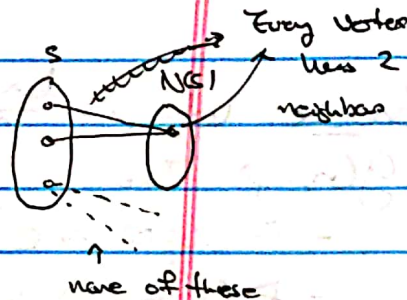 Every vertex
has 2
neighbors
S
N(S)
none of these